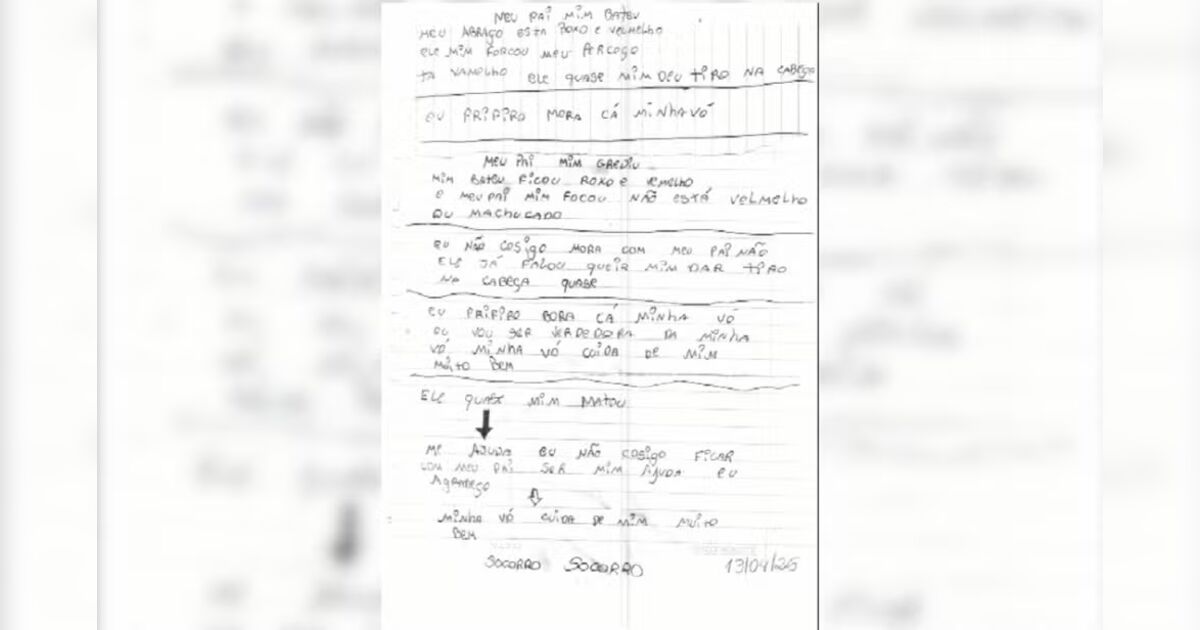 MEU PAI MIM BATEU
MEU ABRAÇO ESTA ROXO E VELMELHO
ELE MIM FORCOU MEU PERCOÇO
TA VAMELHO ELE QUASE MIM DEU TIRO NA CABEÇA
EU PRIFIRO MORA CÁ MINHA VÓ
MEU PAI MIM GREDIU
MIM BATEU FICOU ROXO E VEMELHO
E MEU PAI MIM FOCOU NÃO ESTÁ VELMELHO
OU MACHUCADO
EU NÃO COSIGO MORA COM MEU PAI NÃO
ELE JÁ FALOU QUEIR MIM DAR TIRO
NA CABEÇA QUASE
EU PRIFIRO BORA CÁ MINHA VÓ
EU VOU SER VERDEDERA DA MINHA
VÓ MINHA VÓ CUIDA DE MIM
MUITO BEM
ELE QUASE MIM MATOU
ME AJUDA EU NÃO COSIGO FICAR
COM MEU PAI SER MIM AJUDA EU
AGRADEÇO
MINHA VÓ CUIDA DE MIM MUITO
BEM
SOCORRO SOCORRO 13/04/25